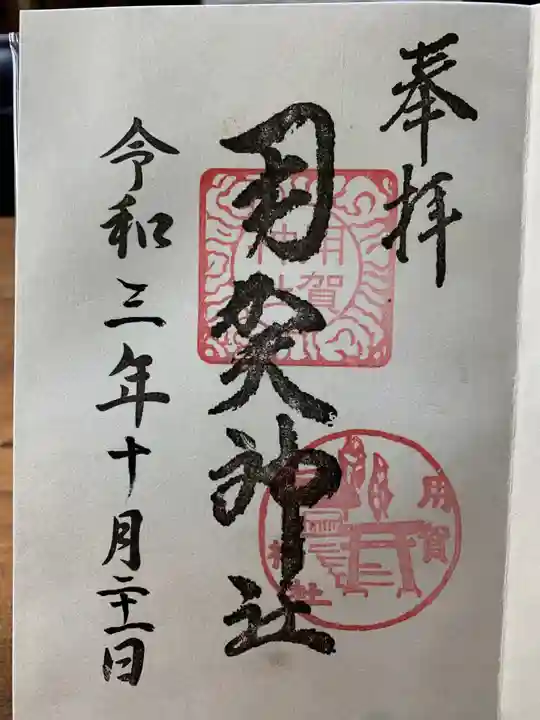 奉拝
用賀神社
用賀神社
用賀神社
令和三年十月二十二日